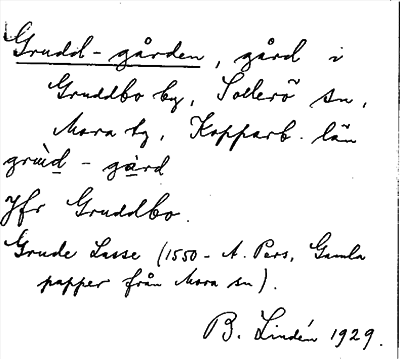 Grudd-gården, gård i
Gruddbo by, Sollerö sn,
Mora tg, Kopparb. län
grùd - gàrd
Jfr Gruddbo.
Grude Lasse (1550 - A. Pers, Gamla
papper från Mora sn).
B. Lindén 1929.